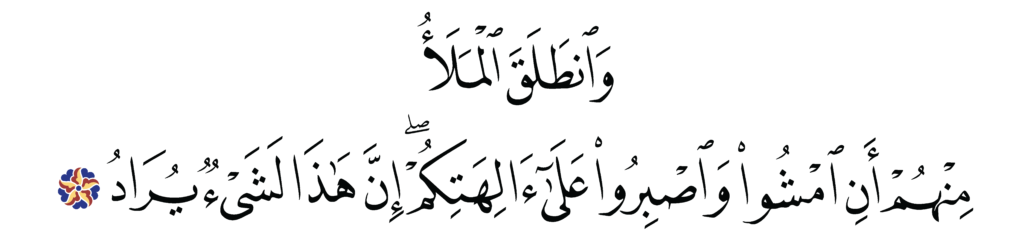 وَٱنطَلَقَ ٱلْمَلَأُ
مِنْهُمْ أَنِ ٱمْشُوا۟ وَٱصْبِرُوا۟ عَلَىٰٓ ءَالِهَتِكُمْ ۖ إِنَّ هَـٰذَا لَشَىْءٌ يُرَادُ